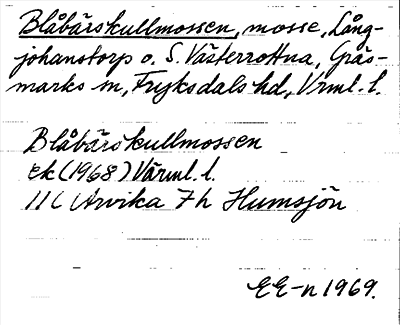 Blåbärskullmossen, mosse, Lång-
johanstorp o. S. Västerrottna, Gräs-
marks sn, Fryksdals hd, Vrml. l.
Blåbärskullmossen
Ek (1968) Värml. l.
11C Arvika 7h Humsjön
EE-n 1969.